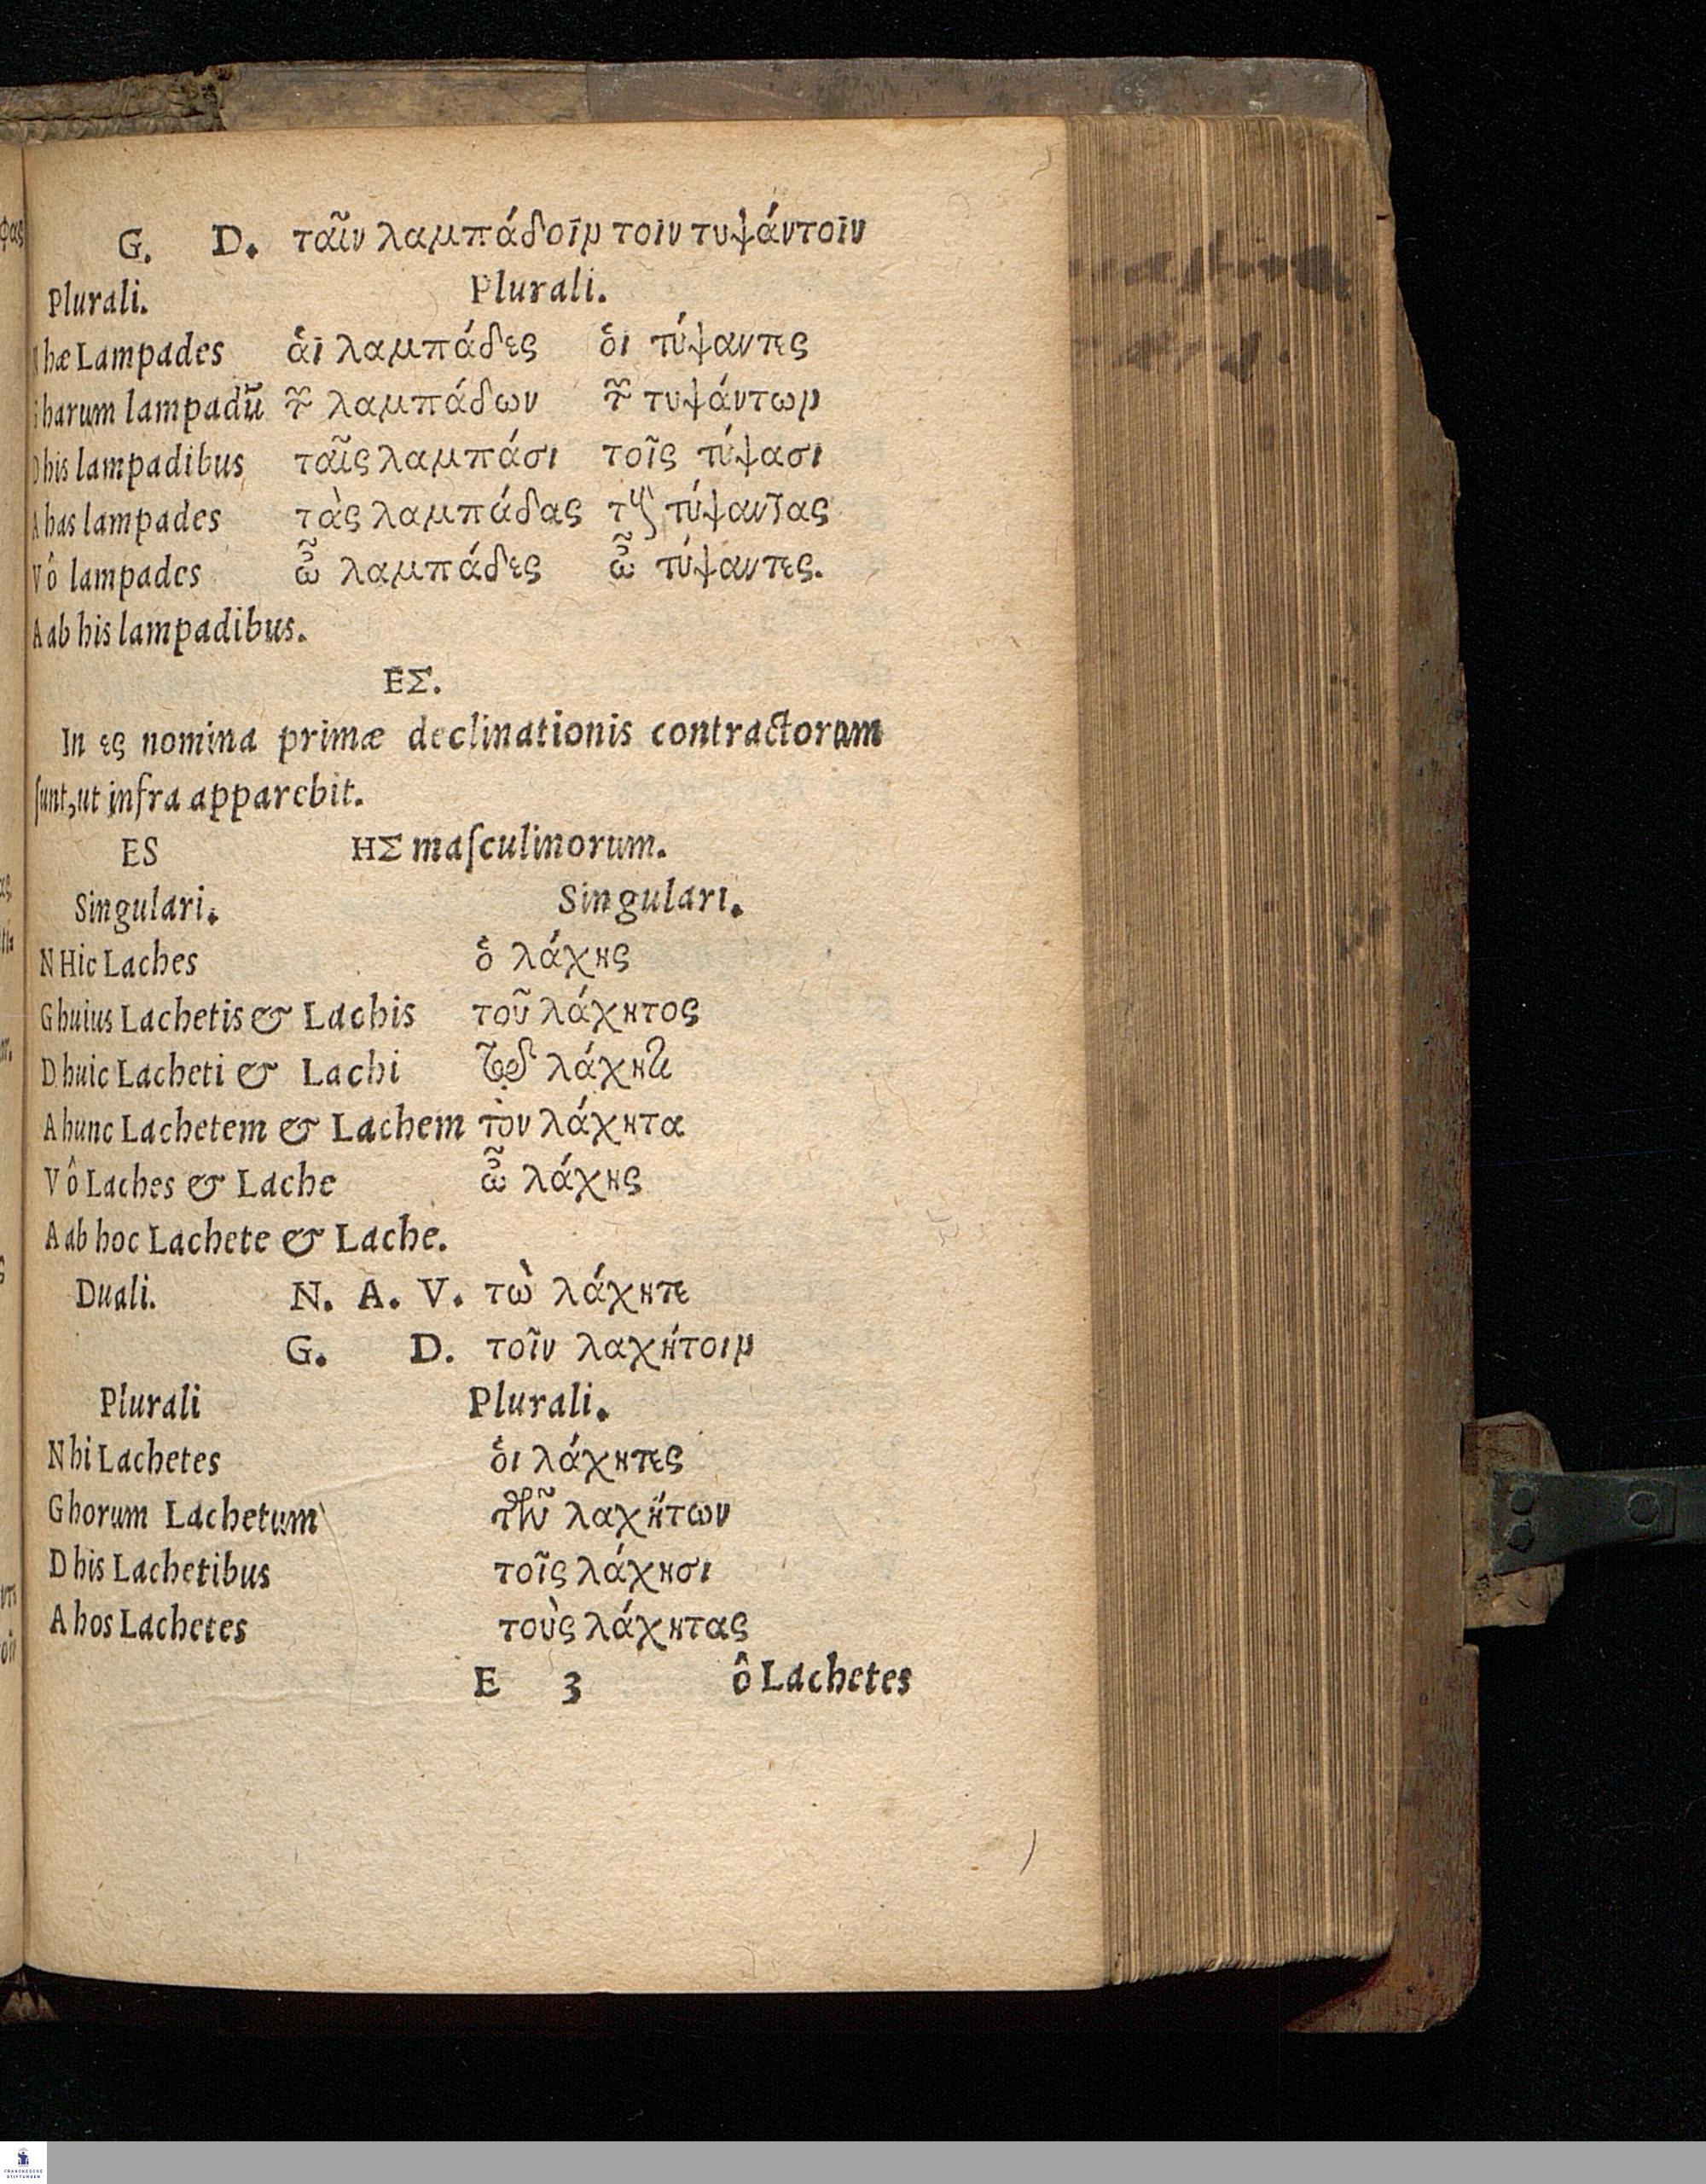 G. D. ταῖν λαμπάδοῑν τοῑν τυψάντοῑν
Plurali. Plurali.
hæ Lampades ἁῑ λαμπάδες ὁι τύψαντες
harum lampadũ τ̃ λαμπάδων τ̃ τυψάντων
D his lampadibus ταῖς λαμπάσι τοῖς τύψασι
A has lampades τὰς λαμπάδας τὺς τύψαντας
V ô lampades ὦ λαμπάδες ὦ τύψαντες.
A ab his lampadibus.
ΕΣ.
In ες nomina primæ declinationis contractorum
ſunt, ut infra apparebit.
ES ΗΣ maſculinorum.
Singulari. Singulari.
N Hic Laches ὁ λάχης
G huius Lachetis & Lachis τοῦ λάχητος
D huic Lacheti & Lachi τῳ λάχητι
A hunc Lachetem & Lachem τὸν λάχητα
V ô Laches & Lache ὦ λάχης
A ab hoc Lachete & Lache.
Duali. N. A. V. τὼ λάχητε
G. D. τοῖν λαχήτοιν
Plurali Plurali.
N hi Lachetes ὁι λάχητες
G horum Lachetum τῶν λαχήτων
D his Lachetibus τοῖς λάχησι
A hos Lachetes τοὺς λάχητας
E 3 ô Lachetes
FRANCKESCHE
STIFTUNGEN